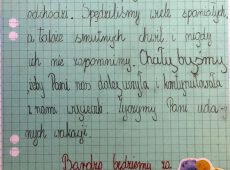 odchodzi. Spędziliśmy wiele spaniałych,
a także smutnych chwil i nigdy
ich nie zapomnimy. Chcielibyśmy,
żeby Pani nas dalej uczyła i kontynuowała
z nami życzymy Pani uda
nych wakacji.
Bardzo będziemy za